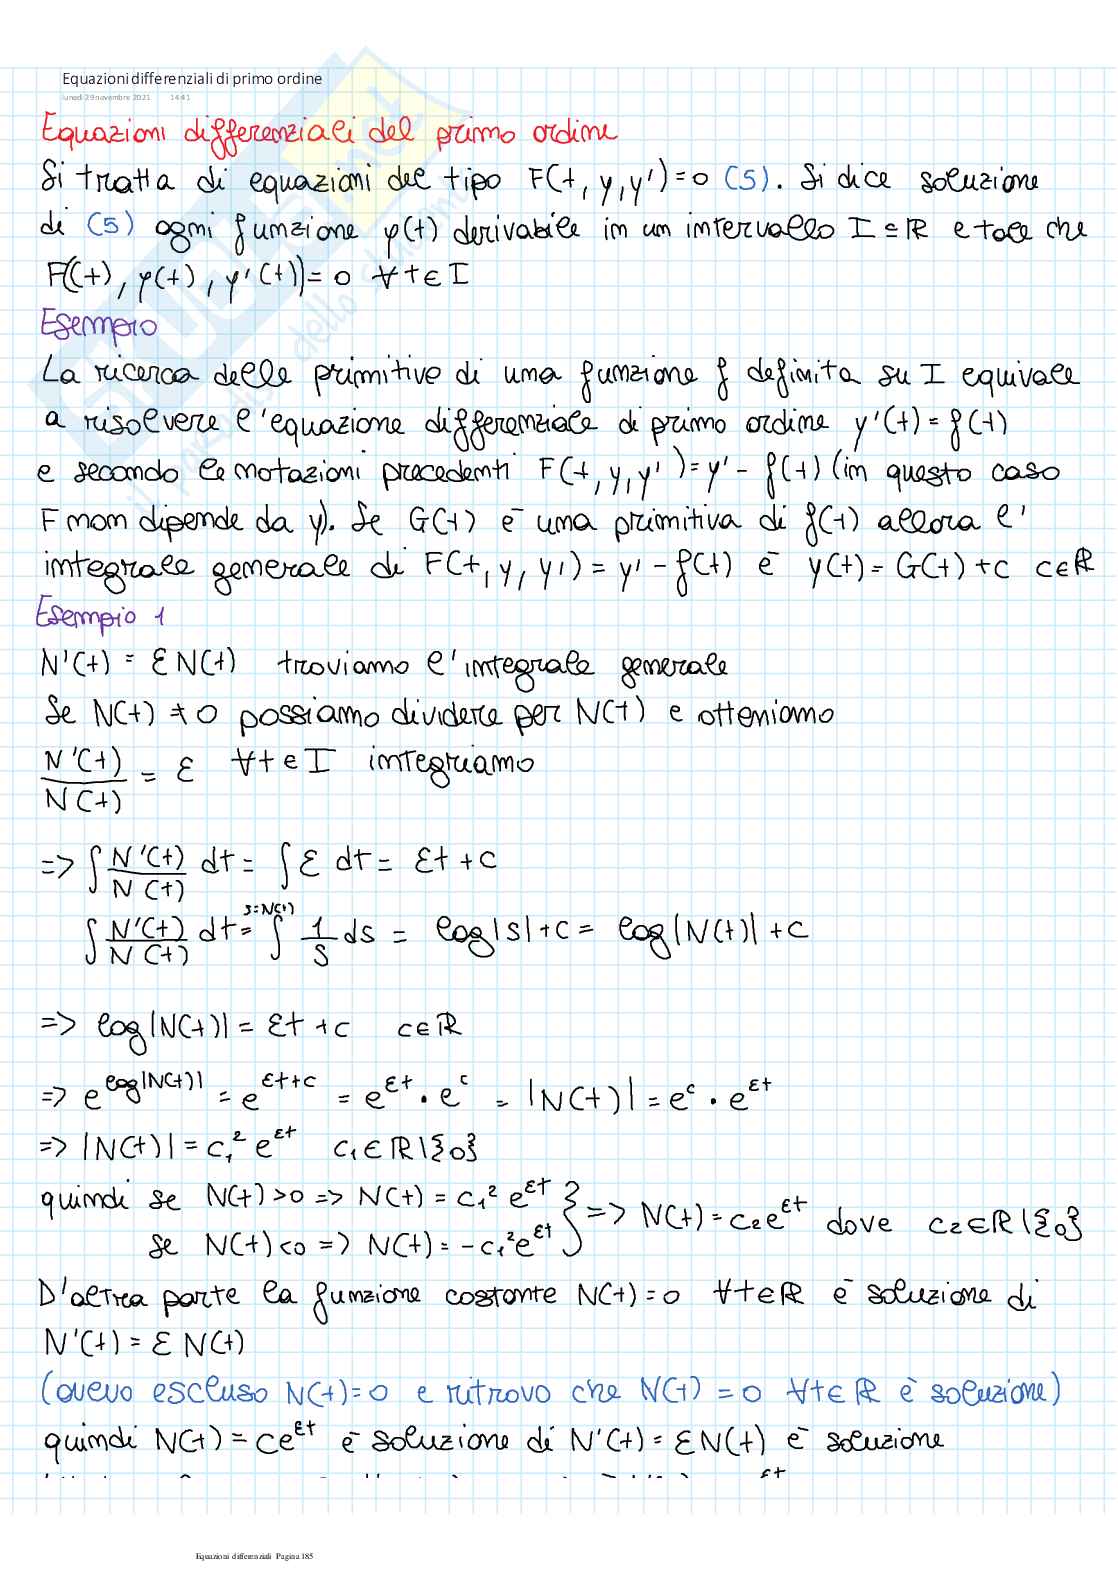 Equazioni differenziali di primo ordine
lunedì 29 novembre 2021 14:41
Equazioni differenziali del primo ordine
Si tratta di equazioni del tipo F(t, y, y') = 0 (5). Si dice soluzione
di (5) ogni funzione φ(t) derivabile in un intervallo I ⊆ ℝ e tale che
F((t), φ(t), φ'(t)) = 0 ∀t∈I
Esempio
La ricerca delle primitive di una funzione f definita su I equivale
a risolvere l'equazione differenziale di primo ordine y'(t) = f(t)
e secondo le notazioni precedenti F(t, y, y') = y' - f(t) (in questo caso
F non dipende da y). Se G(t) è una primitiva di f(t) allora l'
integrale generale di F(t, y, y') = y' - f(t) è y(t) = G(t) + c c∈ℝ
Esempio 1
N'(t) = εN(t) troviamo l'integrale generale
Se N(t) ≠ 0 possiamo dividere per N(t) e otteniamo
N'(t)/N(t) = ε ∀t∈I integriamo
=> ∫ N'(t)/N(t) dt = ∫ ε dt = εt + c
∫ N'(t)/N(t) dt = s=N(t) ∫ 1/s ds = log|s| + c = log|N(t)| + c
=> log|N(t)| = εt + c c∈ℝ
=> e^(log|N(t)|) = e^(εt+c) = e^(εt) · e^c = |N(t)| = e^c · e^(εt)
=> |N(t)| = c₁² e^(εt) c₁∈ℝ\{0}
quindi se N(t)>0 => N(t) = c₁² e^(εt) } => N(t) = c₂e^(εt) dove c₂∈ℝ\{0}
se N(t)<0 => N(t) = -c₁² e^(εt)
D'altra parte la funzione costante N(t) = 0 ∀t∈ℝ è soluzione di
N'(t) = εN(t)
(avevo escluso N(t)=0 e ritrovo che N(t) = 0 ∀t∈ℝ è soluzione)
quindi N(t) = ce^(εt) è soluzione di N'(t) = εN(t) è soluzione
Equazioni differenziali Pagina 185